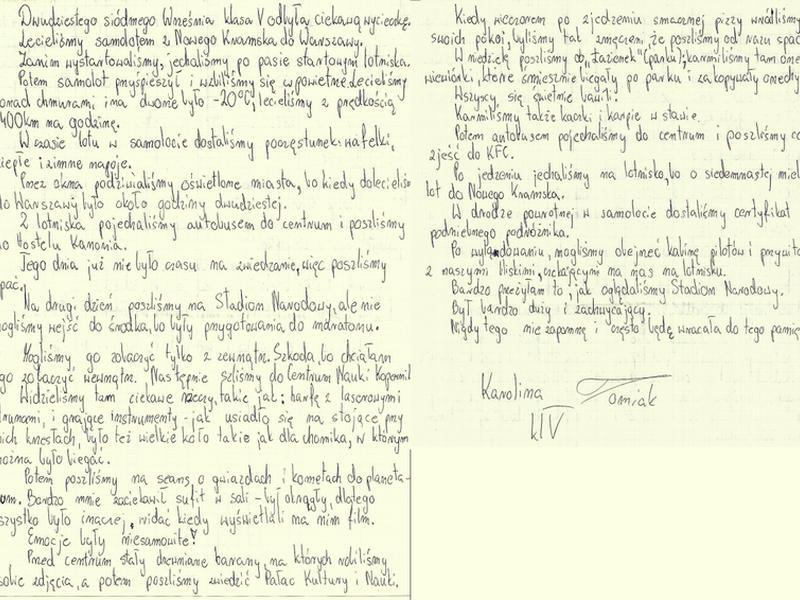 Dwudziestego siódmego Września klasa V odbyła ciekawą wycieczkę.
Lecieliśmy samolotem z Nowego Knamska do Warszawy.
Zanim wystartowaliśmy, jechaliśmy po pasie startowym lotniska.
Potem samolot przyśpieszył i wzbiliśmy się w powietrze. Lecieliśmy
ponad chmurami i na dworze było -20°C, lecieliśmy z prędkością
400km na godzinę.
W czasie lotu w samolocie dostaliśmy poczęstunek: wafelki,
ciepłe i zimne napoje.
Przez okna podziwialiśmy oświetlone miasta, bo kiedy dolecieliś-
do Warszawy było około godziny dwudziestej.
Z lotniska pojechaliśmy autobusem do centrum i poszliśmy
do Hostelu Kanonia.
Tego dnia już nie było czasu na zwiedzanie, więc poszliśmy
spać.
Na drugi dzień poszliśmy na Stadion Narodowy, ale nie
mogliśmy wejść do środka, bo były przygotowania do maratonu.
Mogliśmy go zobaczyć tylko z zewnątrz. Szkoda, bo chciałam
go zobaczyć wewnątrz. Następnie szliśmy do Centrum Nauki Kopernik
Widzieliśmy tam ciekawe rzeczy, takie jak: harfę z laserowymi
strunami, i grające instrumenty - jak usiadło się na stojące przy
nich krzesłach, było też wielkie koło takie jak dla chomika, w którym
można było biegać.
Potem poszliśmy na seans o gwiazdach i kometach do planeta-
rium. Bardzo mnie zaciekawił sufit w sali - był okrągły, dlatego
wszystko było inaczej widać kiedy wyświetlali na nim film.
Emocje były niesamowite!
Przed centrum stały drewniane barany, na których robiliśmy
sobie zdjęcia, a potem poszliśmy zwiedzić Pałac Kultury i Nauki.
Kiedy wieczorem po zjedzeniu smacznej pizzy wróciliśmy
swoich pokoi, byliśmy tak zmęczeni, że poszliśmy od razu spać
W niedzielę poszliśmy do "Łazienek" (parku); karmiliśmy tam one
wiewiórki, które śmiesznie biegały po parku i zakopywały orzechy
Wszyscy się świetnie bawili!
Karmiliśmy także kaczki i karpie w stawie.
Potem autobusem pojechaliśmy do centrum i poszliśmy co
zjeść do KFC.
Po jedzeniu jechaliśmy na lotnisko, bo o siedemnastej mieli
lot do Nowego Knamska.
W drodze powrotnej w samolocie dostaliśmy certyfikat
podniebnego podróżnika.
Po wylądowaniu, mogliśmy obejrzeć kabinę pilotów i przywita
z naszymi bliskimi, czekającymi na nas na lotnisku.
Bardzo przeżyłam to, jak oglądaliśmy Stadion Narodowy.
Był bardzo duży i zachwycający.
Nigdy tego nie zapomnę i często będę wracała do tego pamię
Karolina Tomiak
kl V